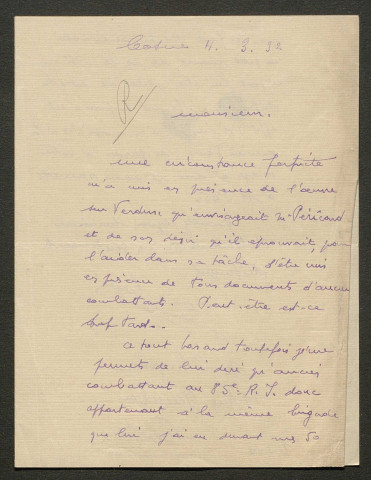 Cosne 4. 3. 32
R
Monsieur,
Une circonstance fortuite
m'a mis en présence de l'œuvre
sur Verdun qu'envisageait Mr Péricard
et de son désir qu'il éprouvait, pour
l'aider dans sa tâche, d'être mis
en présence de tous documents d'anciens
combattants. Peut-être est-ce
trop tard..
A tout hasard toutefois je me
permets de lui dire qu'ancien
combattant au 85e R. I. donc
appartenant à la même brigade
que lui j'ai eu devant mes 50